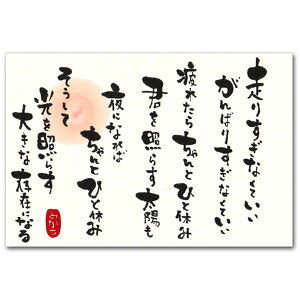 走りすぎなくていい
がんばりすぎなくていい
疲れたら ちゃんとひと休み
君を照らす太陽も
夜になれば
ちゃんとひと休み
そうして
光を照らす
大きな存在になる